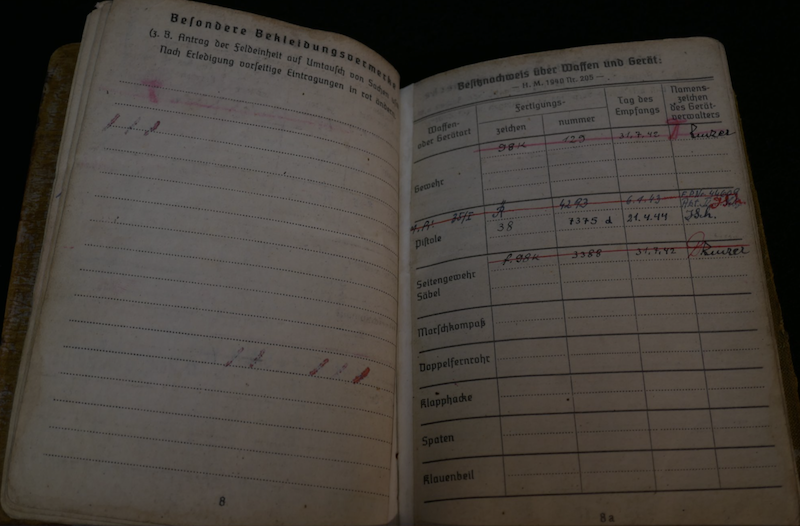 Besondere Bekleidungsvermerke
(z. B. Antrag der Feldeinheit auf Umtausch von Sachen
Nach Erledigung vorseitige Eintragungen in rot ändern)
8
Besitznachweis über Waffen und Gerät:
— H. M. 1940 Nr. 205 —
Waffen- oder Geräteart
Fertigungs-
zeichen
nummer
Tag des Empfangs
Namens- zeichen des Gerät- verwalters
Gewehr
98k 129 31.7.42
Pistole
4293 6.1.43
38 7375 d 21.4.44
Seitengewehr Säbel
3388 31.7.42
Marschkompaß
Doppelfernrohr
Klapphacke
Spaten
Klauenbeil
8a